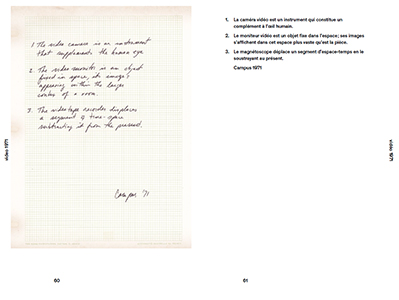 1 The video camera is an instrument
that supplements the human eye.
2. The video monitor is an object
fixed in space, its images
appearing within the larger
context of a room.
3. The videotape recorder displaces
a segment of time-space
subtracting it from the present.
Campus '71
video 1971
60
1. La caméra vidéo est un instrument qui constitue un
complément à l'œil humain.
2. Le moniteur vidéo est un objet fixe dans l'espace; ses images
s'affichent dans cet espace plus vaste qu'est la pièce.
3. Le magnétoscope déplace un segment d'espace-temps en le
soustrayant au présent.
Campus 1971
vidéo 1971
61